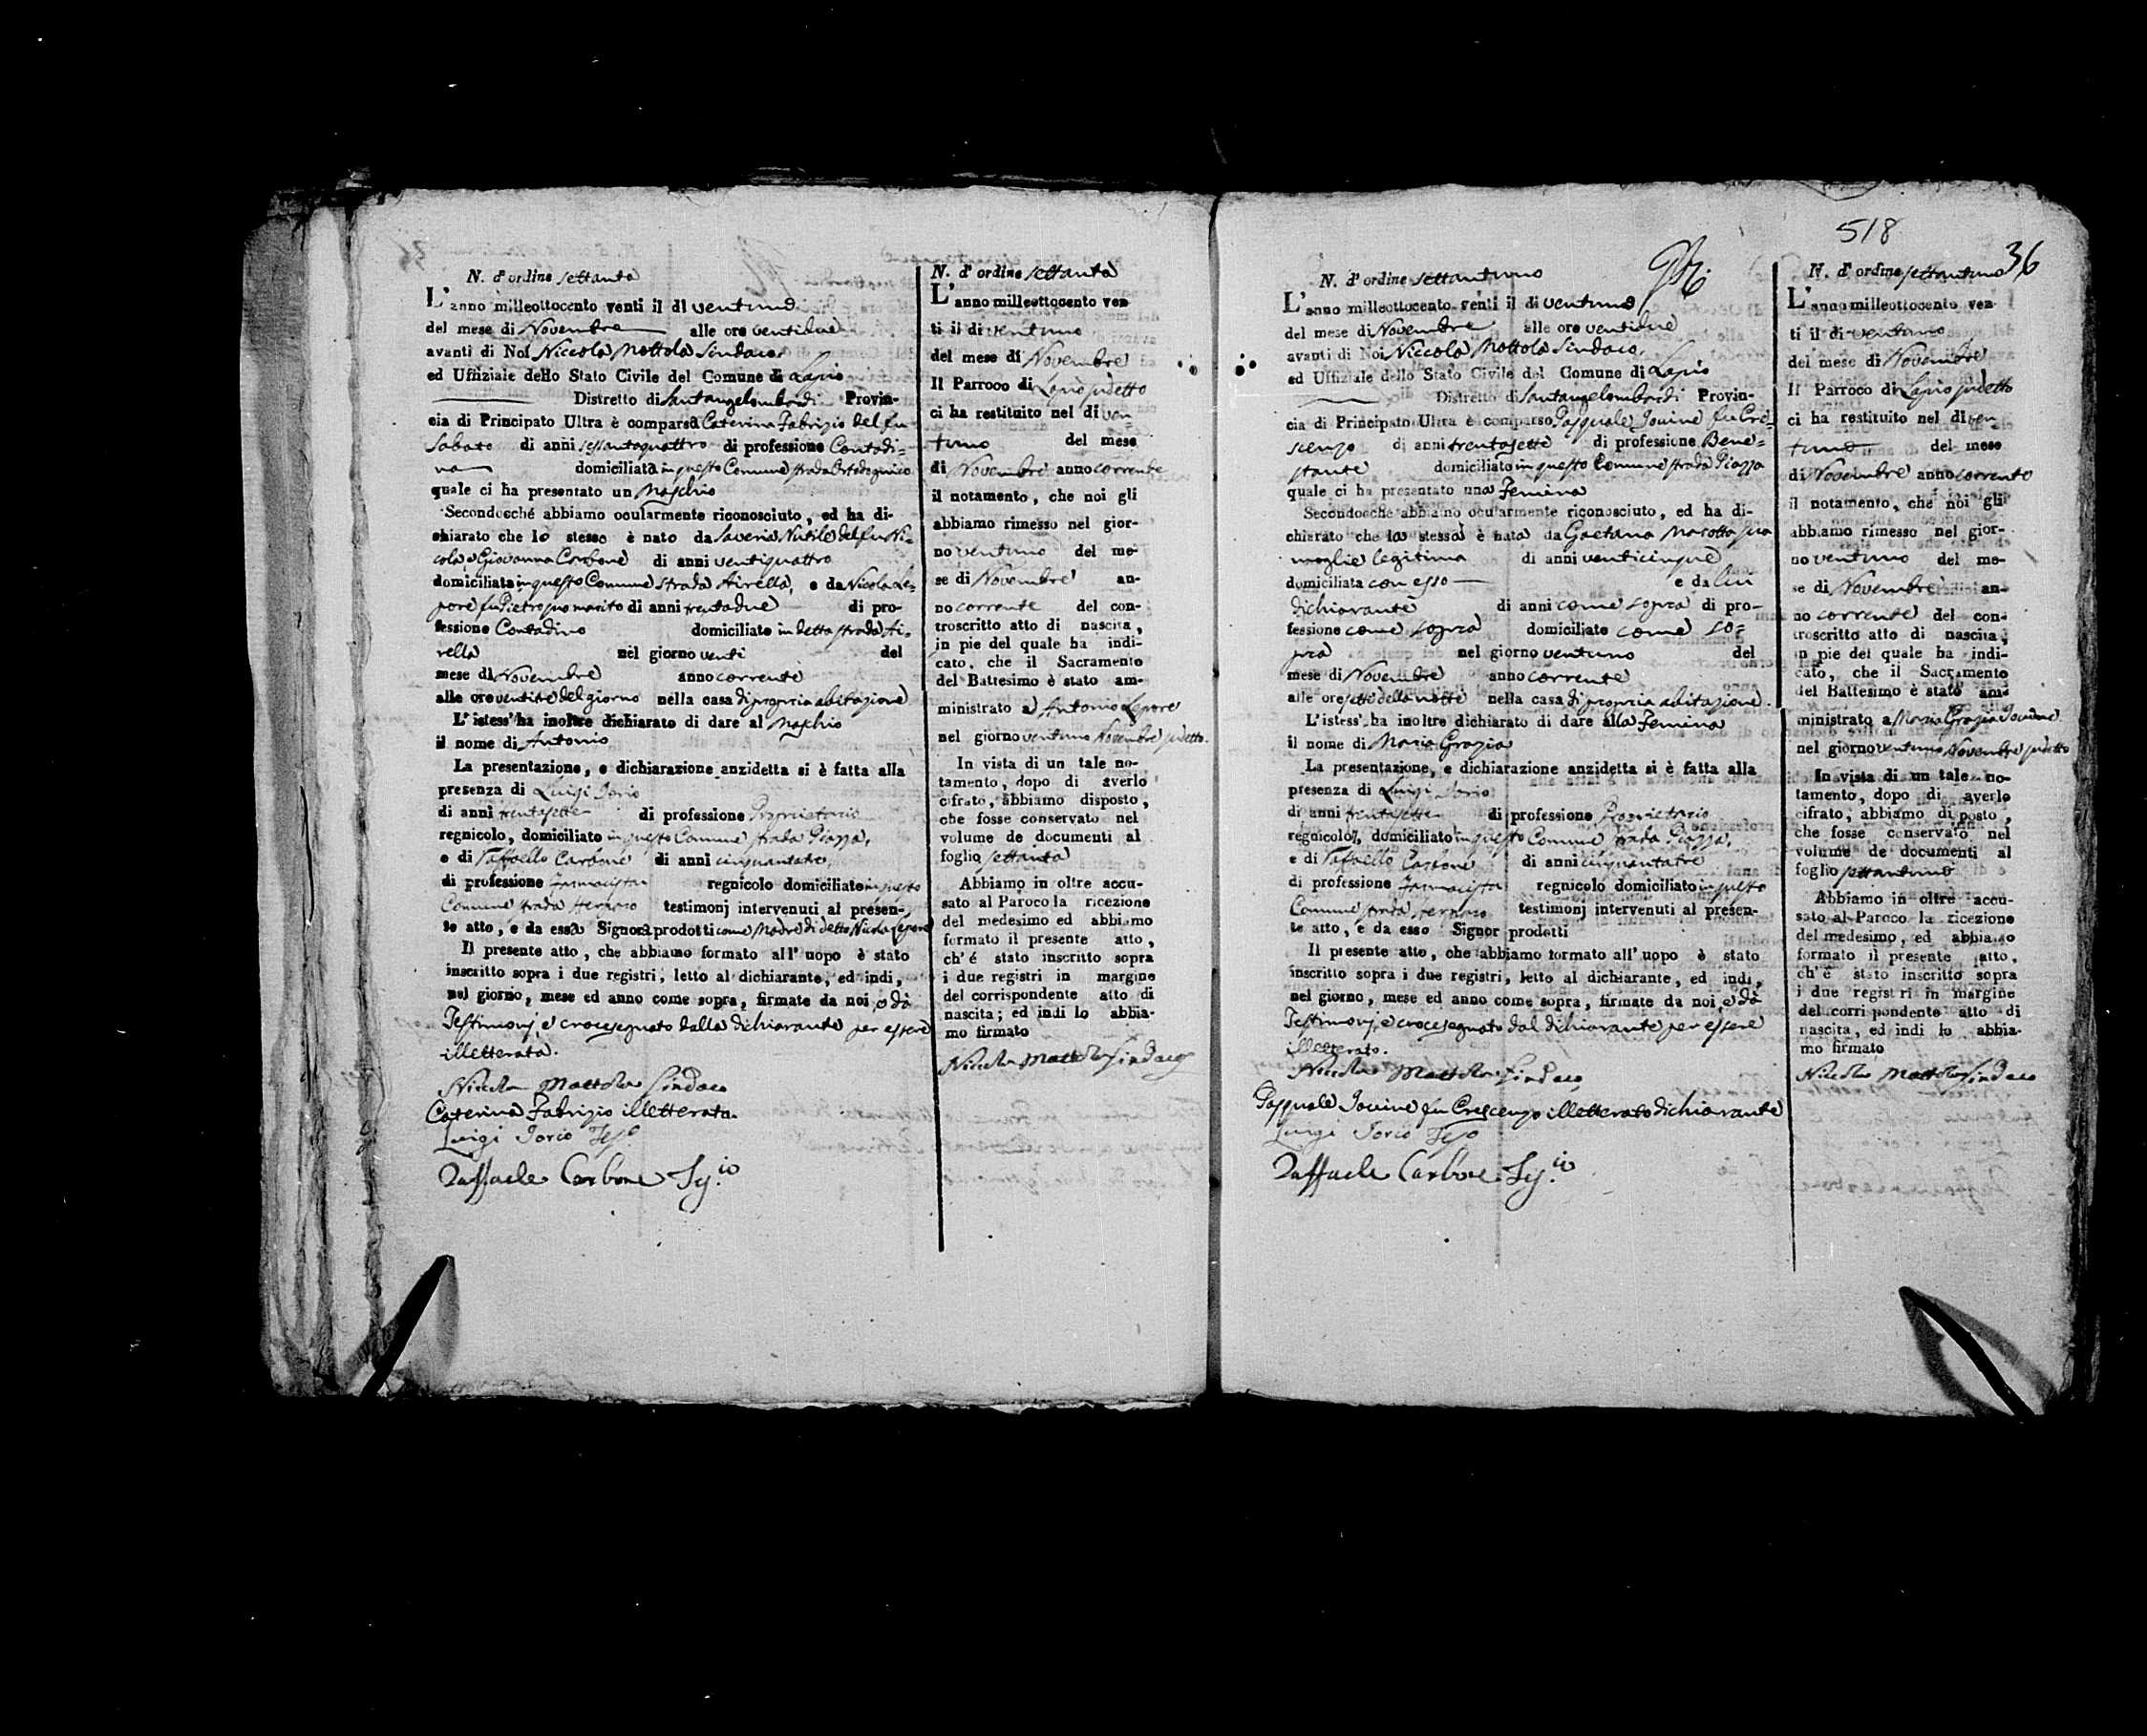 N. d' ordine settanta
L' anno milleottocento venti il dì ventuno
del mese di Novembre alle ore ventidue
avanti di Noi Niccola Mottola Sindaco,
ed Uffiziale dello Stato Civile del Comune di Lapio
Distretto di Santangelombardi Provin-
cia di Principato Ultra è comparsa Caterina Fabrizio del fu
Sabato di anni sessantaquattro di professione Contadi=
na domiciliata in questo Comune strada
quale ci ha presentato un Maschio
Secondocché abbiamo ocularmente riconosciuto, ed ha di-
chiarato che lo stesso è nato da Saveria Nutile del fu Ni=
cola, e Giovanna Carbone di anni ventiquattro
domiciliata in questo Comune strada Airella, e da Nicola Le=
pore fu Pietro suo marito di anni trentadue di pro-
fessione Contadino domiciliato in detta strada Ai=
rella nel giorno venti del
mese di Novembre anno corrente
alle ore ventitre del giorno nella casa di propria abitazione
L' istess' ha inoltre dichiarato di dare al Maschio
il nome di Antonio
La presentazione, e dichiarazione anzidetta si è fatta alla
presenza di Luigi Iorio
di anni trentasette di professione Proprietario
regnicolo, domiciliato in questo Comune strada Piazza,
e di Raffaello Carbone di anni cinquantatre,
di professione Farmacista regnicolo domiciliato in questo
Comune strada testimonj intervenuti al presen-
te atto, e da essa Signora prodotti come Madre di detto Nicola Lepore
Il presente atto, che abbiamo formato all' uopo è stato
inscritto sopra i due registri, letto al dichiarante, ed indi,
nel giorno, mese ed anno come sopra, firmate da noi, e da
Testimonj, e crocesegnato dalla dichiarante per essere
illetterata.
Niccola Mottola Sindaco
Caterina Fabrizio illetterata.
Luigi Iorio
Raffaele Carbone
N. d' ordine settanta
L' anno milleottocento ven-
ti il di ventuno
del mese di Novembre
Il Parroco di Lapio sudetto
ci ha restituito nel di ven=
tuno del mese
di Novembre anno corrente
il notamento, che noi gli
abbiamo rimesso nel gior-
no ventuno del me-
se di Novembre an-
no corrente del con-
troscritto atto di nascita,
in pie del quale ha indi-
cato, che il Sacramento
del Battesimo è stato am-
ministrato a Antonio Lepore
nel giorno ventuno Novembre sudetto.
In vista di un tale no-
tamento, dopo di averlo
cifrato, abbiamo disposto,
che fosse conservato nel
volume de documenti al
foglio settanta
Abbiamo in oltre accu-
sato al Paroco la ricezione
del medesimo ed abbiamo
formato il presente atto,
ch'é stato inscritto sopra
i due registri in margine
del corrispondente atto di
nascita; ed indi lo abbia-
mo firmato
Niccola Mottola Sindaco
518
36
N. d' ordine settantuno
L' anno milleottocento venti il di ventuno
del mese di Novembre alle ore ventidue
avanti di Noi Niccola Mottola Sindaco,
ed Uffiziale dello Stato Civile del Comune di Lapio
Distretto di Santangelombardi Provin-
cia di Principato Ultra è comparso Pasquale Iovine fu Cre=
scenzo di anni trentasette di professione Bene=
stante domiciliato in questo Comune strada Piazza
quale ci ha presentato una Femina
Secondocche abbiamo ocularmente riconosciuto, ed ha di-
chiarato che la stessa è nata da Gaetana Marotta sua
moglie legitima di anni venticinque
domiciliata con esso e da lui
dichiarante di anni come sopra di pro-
fessione come sopra domiciliato come so=
pra nel giorno ventuno del
mese di Novembre anno corrente
alle ore sette della notte nella casa di propria abitazione.
L' istess' ha inoltre dichiarato di dare alla Femina
il nome di Maria Grazia
La presentazione, e dichiarazione anzidetta si è fatta alla
presenza di Luigi Iorio
di anni trentasette di professione Proprietario
regnicolo, domiciliato in questo Comune strada Piazza,
e di Raffaello Carbone di anni cinquantatre
di professione Farmacista regnicolo domiciliato in questo
Comune strada testimonj intervenuti al presen-
te atto, e da esso Signor prodotti
Il presente atto, che abbiamo formato all' uopo è stato
inscritto sopra i due registri, letto al dichiarante, ed indi,
nel giorno, mese ed anno come sopra, firmate da noi, e da
Testimonj, e crocesegnato dal dichiarante per essere
illetterato.
Niccola Mottola Sindaco
Pasquale Iovine fu Crescenzo illetterato dichiarante
Luigi Iorio
Raffaele Carbone
N. d' ordine settantuno
L' anno milleottocento ven-
ti il di ventuno
del mese di Novembre
Il Parroco di Lapio sudetto
ci ha restituito nel di ven=
tuno del mese
di Novembre anno corrente
il notamento, che noi gli
abbiamo rimesso nel gior-
no ventuno del me-
se di Novembre an-
no corrente del con-
troscritto atto di nascita,
in pie del quale ha indi-
cato, che il Sacramento
del Battesimo è stato am-
ministrato a Maria Grazia Iovine
nel giorno ventuno Novembre sudetto
In vista di un tale no-
tamento, dopo di averlo
cifrato, abbiamo disposto,
che fosse conservato nel
volume de documenti al
foglio settantuno
Abbiamo in oltre accu-
sato al Paroco la ricezione
del medesimo, ed abbiamo
formato il presente atto,
ch'é stato inscritto sopra
i due registri in margine
del corrispondente atto di
nascita, ed indi lo abbia-
mo firmato
Niccola Mottola Sindaco